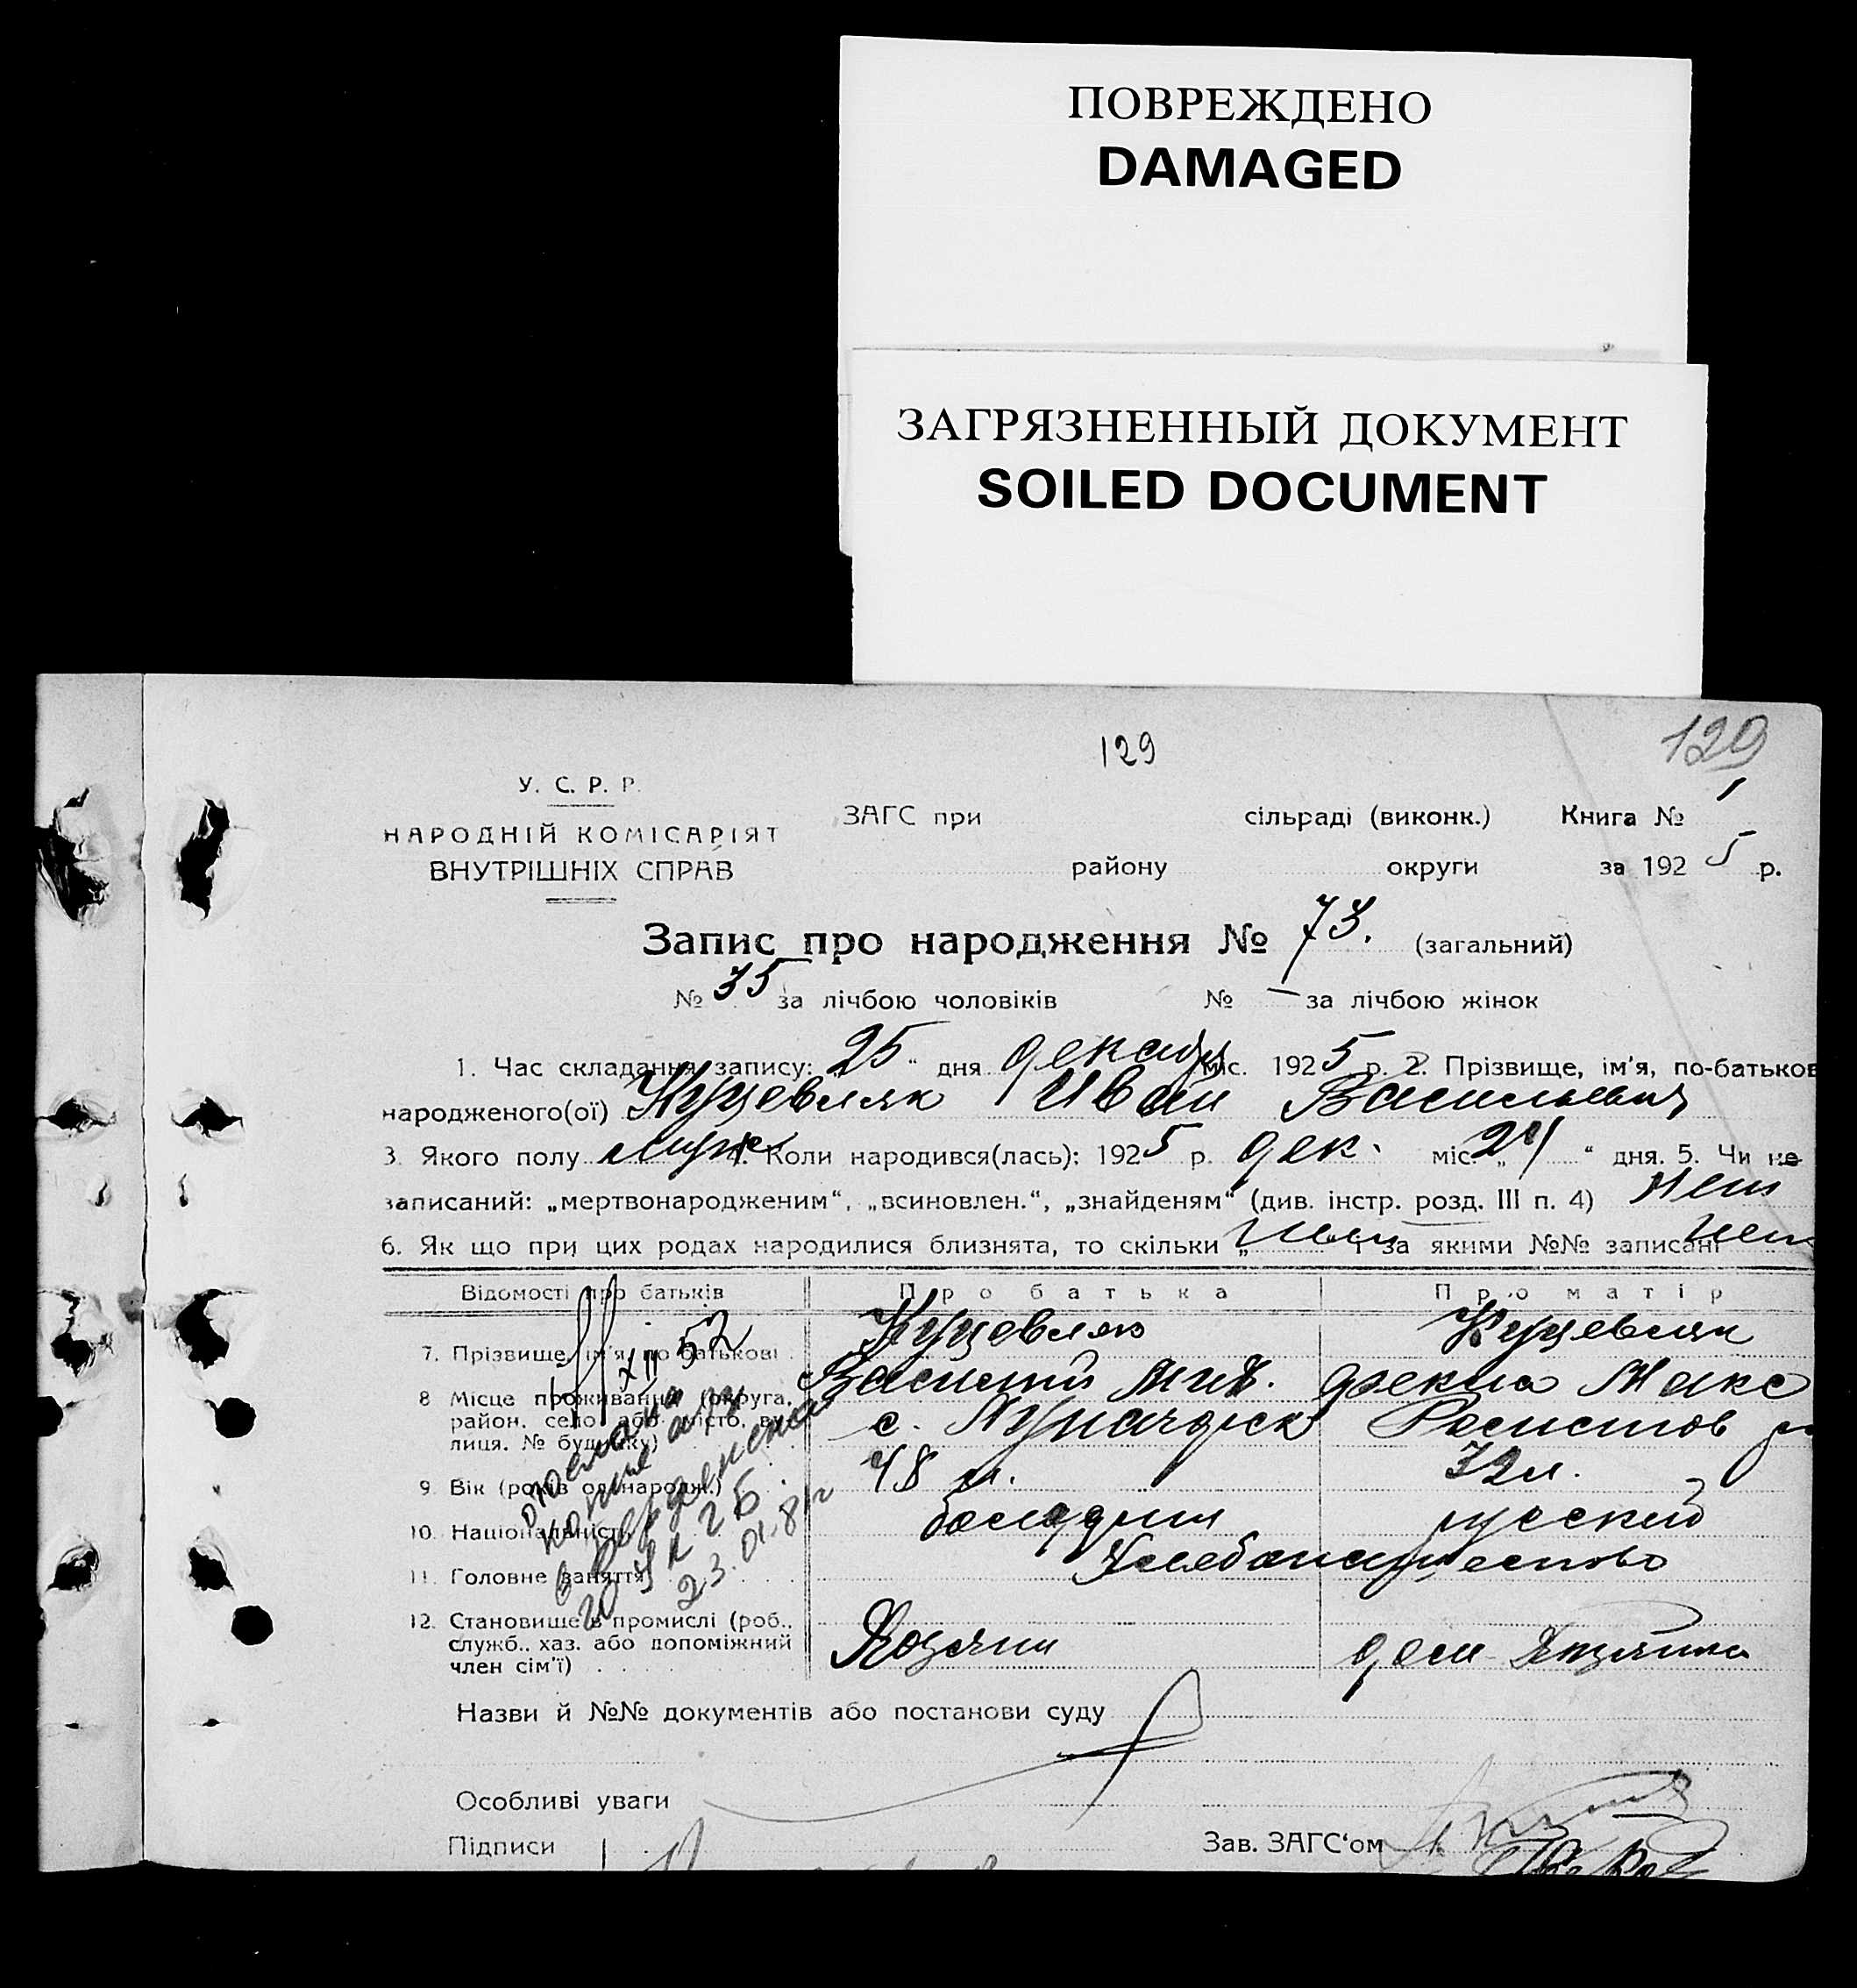 ПОВРЕЖДЕНО
DAMAGED
ЗАГРЯЗНЕННЫЙ ДОКУМЕНТ
SOILED DOCUMENT
129
129
У. С. Р. Р.
НАРОДНІЙ КОМІСАРІЯТ
ВНУТРІШНІХ СПРАВ
ЗАГС при сільраді (виконк.) Книга № 1
району округи за 1925 р.
Запис про народження № 73. (загальний)
№ 35 за лічбою чоловіків № — за лічбою жінок
1. Час складання запису: „25“ дня декабр міс. 1925 р. 2. Прізвище, ім'я, по-батьков
народженого(ої) Куцевляк Иван Васильевич
3. Якого полу муж 4. Коли народився(лась): 1925 р. дек. міс. „24“ дня. 5. Чи не
записаний: „мертвонародженим“, „всиновлен.“, „знайденям“ (див. інстр. розд. III п. 4) Нет
6. Як що при цих родах народилися близнята, то скільки „ і за якими №№ записані нет
Відомості про батьків Про батька Про матір
7. Прізвище, ім'я, по батькові Куцевляк Куцевляк
Василий Фекла Макс
8 Місце проживання (округа, район, село або місто, вулиця, № будинку) с.
9. Вік (років од народж.) 48 л. 32 л.
10. Національність русский
11. Головне заняття Хлебопашество
12. Становище в промислі (роб., служб., хаз. або допоміжний член сім'ї) Хозяин дом. Хозяйка
XII 52
23.01.8
Назви й №№ документів або постанови суду
Особливі уваги
Підписи Зав. ЗАГС'ом